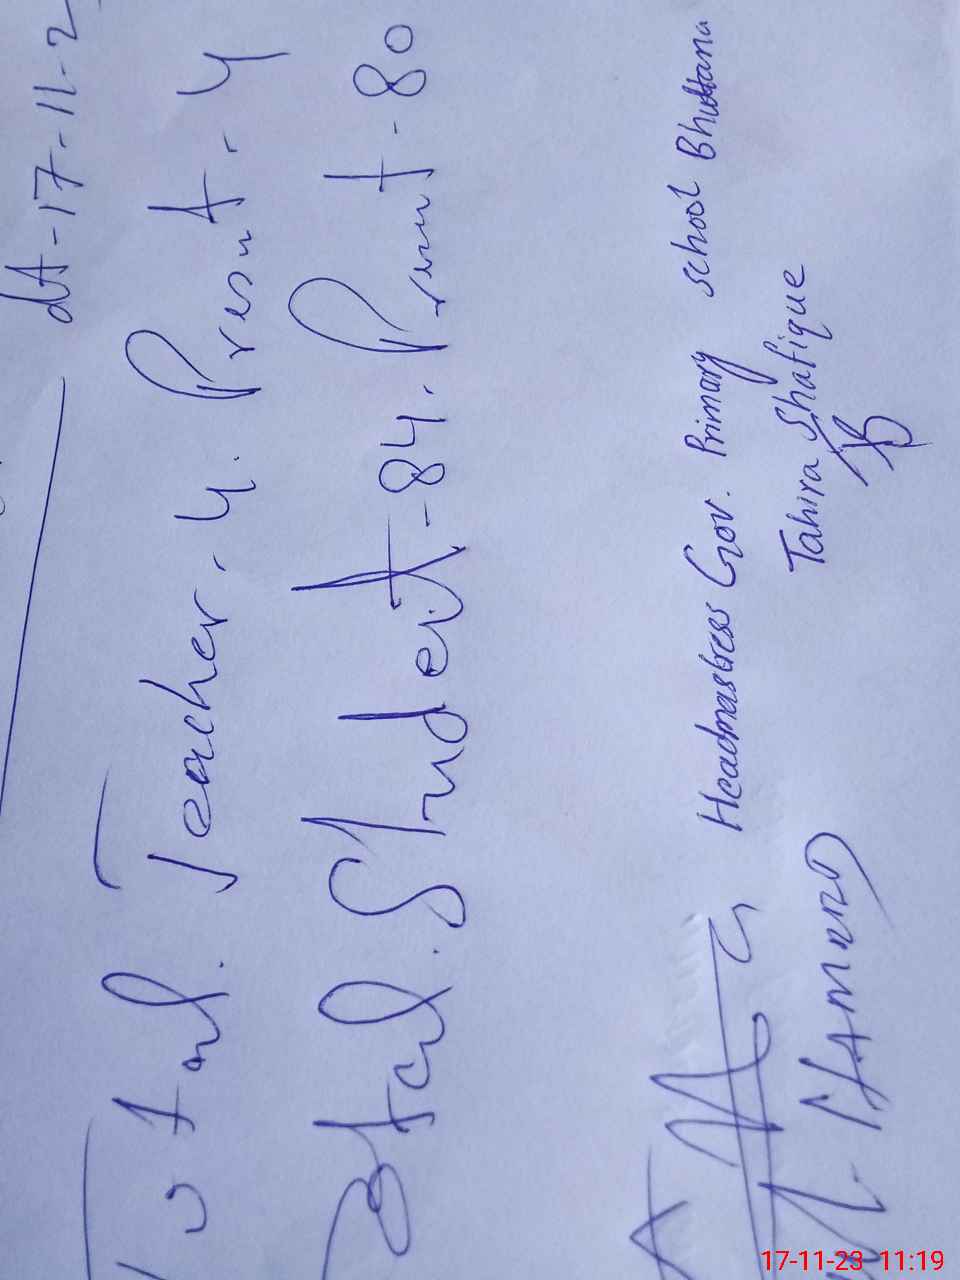 dt-17-11-2
Total. Teacher. 4. Present. 4
Total. Student-84. Present-80
Headmastress Gov. Primary school Bhuttana
Tahira Shafique
17-11-23 11:19